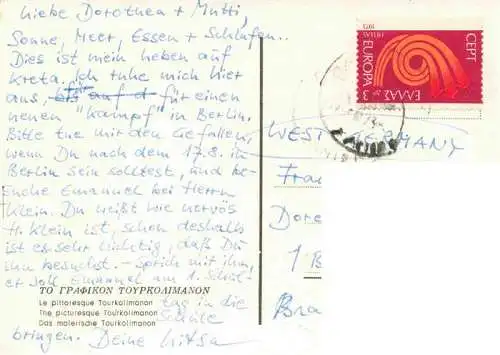 Liebe Dorothea + Mutti,
Sonne, Meer, Essen + Schlafen..
Dies ist mein Leben auf
Kreta. Ich ruhe mich hier
aus, für einen
neuen "Kampf" in Berlin.
Bitte tue mir den Gefallen,
wenn Du nach dem 17.8. in
Berlin sein solltest, und be-
suche Emanuel bei Herrn
Klein. Du weißt wie nervös
H. Klein ist, schon deshalb
ist es sehr wichtig, daß Du
ihn besuchst. - Sprich mit ihm,
er soll Emanuel am 1. Schul-
tag in die
Schule
bringen. Deine
ΤΟ ΓΡΑΦΙΚΟΝ ΤΟΥΡΚΟΛΙΜΑΝΟΝ
Le pittoresque Tourkolimanon
The picturesque Tourkolimanon
Das malerische Tourkolimanon
CEPT
EUROPA
ΕΛΛΑΣ
HELLAS
1973
3
WEST GERMANY
Frau
Doro
1 B
Bra